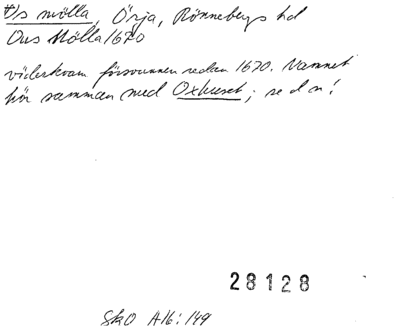 †Os mölla, Örja, Rönnebergs hd
Ous Mölla 1670
väderkvarn försvunnen redan 1670. Namnet
hör samman med Oxhuset; se d n!
28128
SkO A16:149